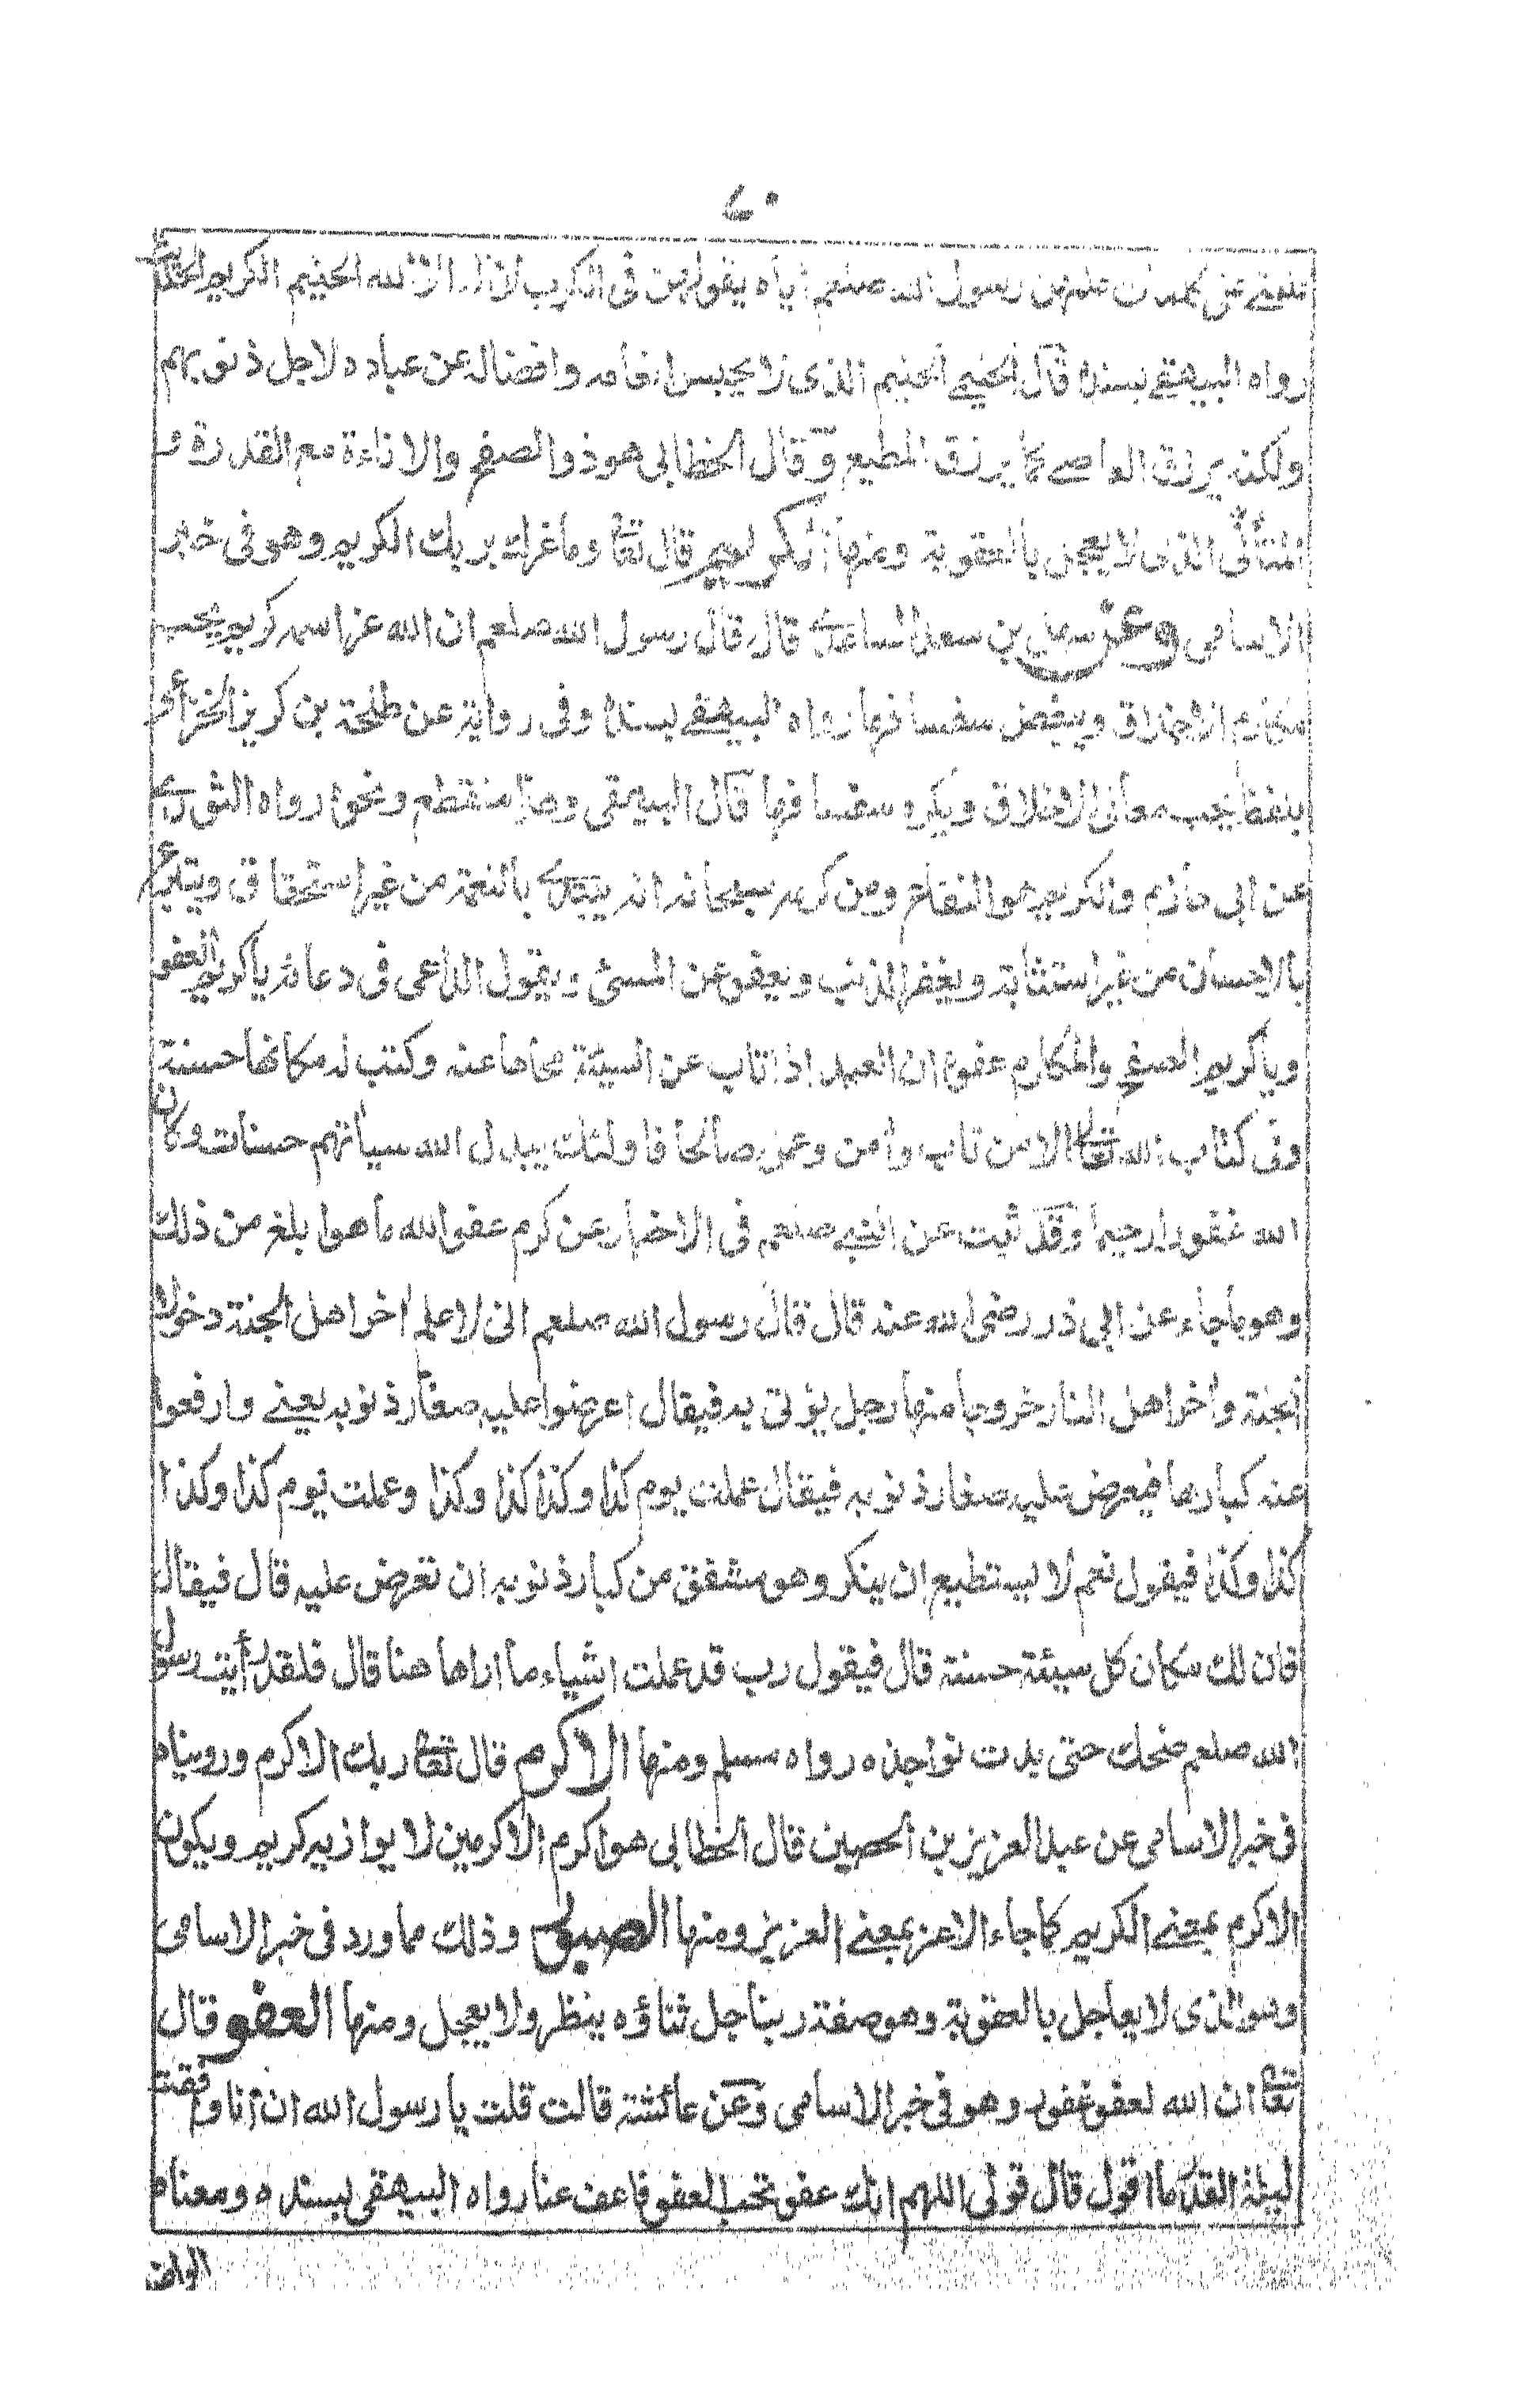 ۴۰
رسول الله صلعم اياه يقولهن فى الكرب لا اله الا الله الحليم الكريم الخ
رواه البيهقي بسنده قال الحليمي الحليم الذى لا يحبس انعامه وافضاله عن عباده لاجل ذنوبهم
ولكنه يرزق العاصے كما يرزق المطيع وقال الخطابى هو ذو الصفح والاناءة مع القدرة و
المتأنى الذى لا يعجل بالعقوبة ومنها الكريم قال تعا وما غرك بربك الكريم وهو فى خبر
الاسامى وعن سهل بن سعد الساعدى قال قال رسول الله صلعم ان الله عز اسمه كريم يحب
مكارم الاخلاق ويبغض سفسافها رواه البيهقے بسنده وفى رواية عن طلحة بن كريز الخزاعى
بلفظ يحب معالى الاخلاق ويكره سفسافها قال البيهقى وهذا منقطع ونحوه رواه الثورى
عن ابى حازم والكريم هو النفاع ومن كرمه سبحانه انه يبتدئ بالنعمة من غير استحقاق ويتبرع
بالاحسان من غير استثابة ويغفر الذنب ويعفو عن المسئ ويقول الداعى فى دعائه يا كريم العفو
ويا كريم الصفح والمكارم عفوه ان العبد اذا تاب عن السيئة محاها عنه وكتب له مكانها حسنة
وفى كتاب الله تعا الا من تاب وامن وعمل صالحا فاولئك يبدل الله سيأتهم حسنات وكان
الله غفورا رحيما وقد ثبت عن النبے صلعم فى الاخبار عن كرم عفو الله ما هو ابلغ من ذلك
وهو ما جاء عن ابى ذر رضى الله عنه قال قال رسول الله صلعم انى لاعلم اخر اهل الجنة دخولا
الجنة واخر اهل النار خروجا منها رجل يؤتى به فيقال اعرضوا عليه صغار ذنوبه يعنے وارفعوا
عنه كبارها فيعرض عليه صغار ذنوبه فيقال عملت يوم كذا وكذا كذا وكذا وعملت يوم كذا وكذا
كذا وكذا فيقول نعم لا يستطيع ان ينكر وهو مشفق من كبار ذنوبه ان تعرض عليه قال فيقال
فان لك مكان كل سيئة حسنة قال فيقول رب قد عملت اشياء ما اراها هنا قال فلقد رأيت رسول
الله صلعم ضحك حتى بدت نواجذه رواه مسلم ومنها الاكرم قال تعا وربك الاكرم ورويناه
فى خبر الاسامى عن عبد العزيز بن الحصين قال الخطابى هو اكرم الاكرمين لا يوازيه كريم ويكون
الاكرم بمعنے الكريم كما جاء الاعز بمعنے العزيز ومنها الصبور وذلك مما ورد فى خبر الاسامى
وهو الذى لا يعاجل بالعقوبة وهو صفة ربنا جل ثناؤه ينظر ولا يعجل ومنها العفو قال
تعا ان الله لعفو غفور وهو فى خبر الاسامى وعن عائشة قالت قلت يا رسول الله ان انا وافقت
ليلة القدر ما اقول قال قولى اللهم انك عفو تحب العفو فاعف عنا رواه البيهقى بسنده ومعناه